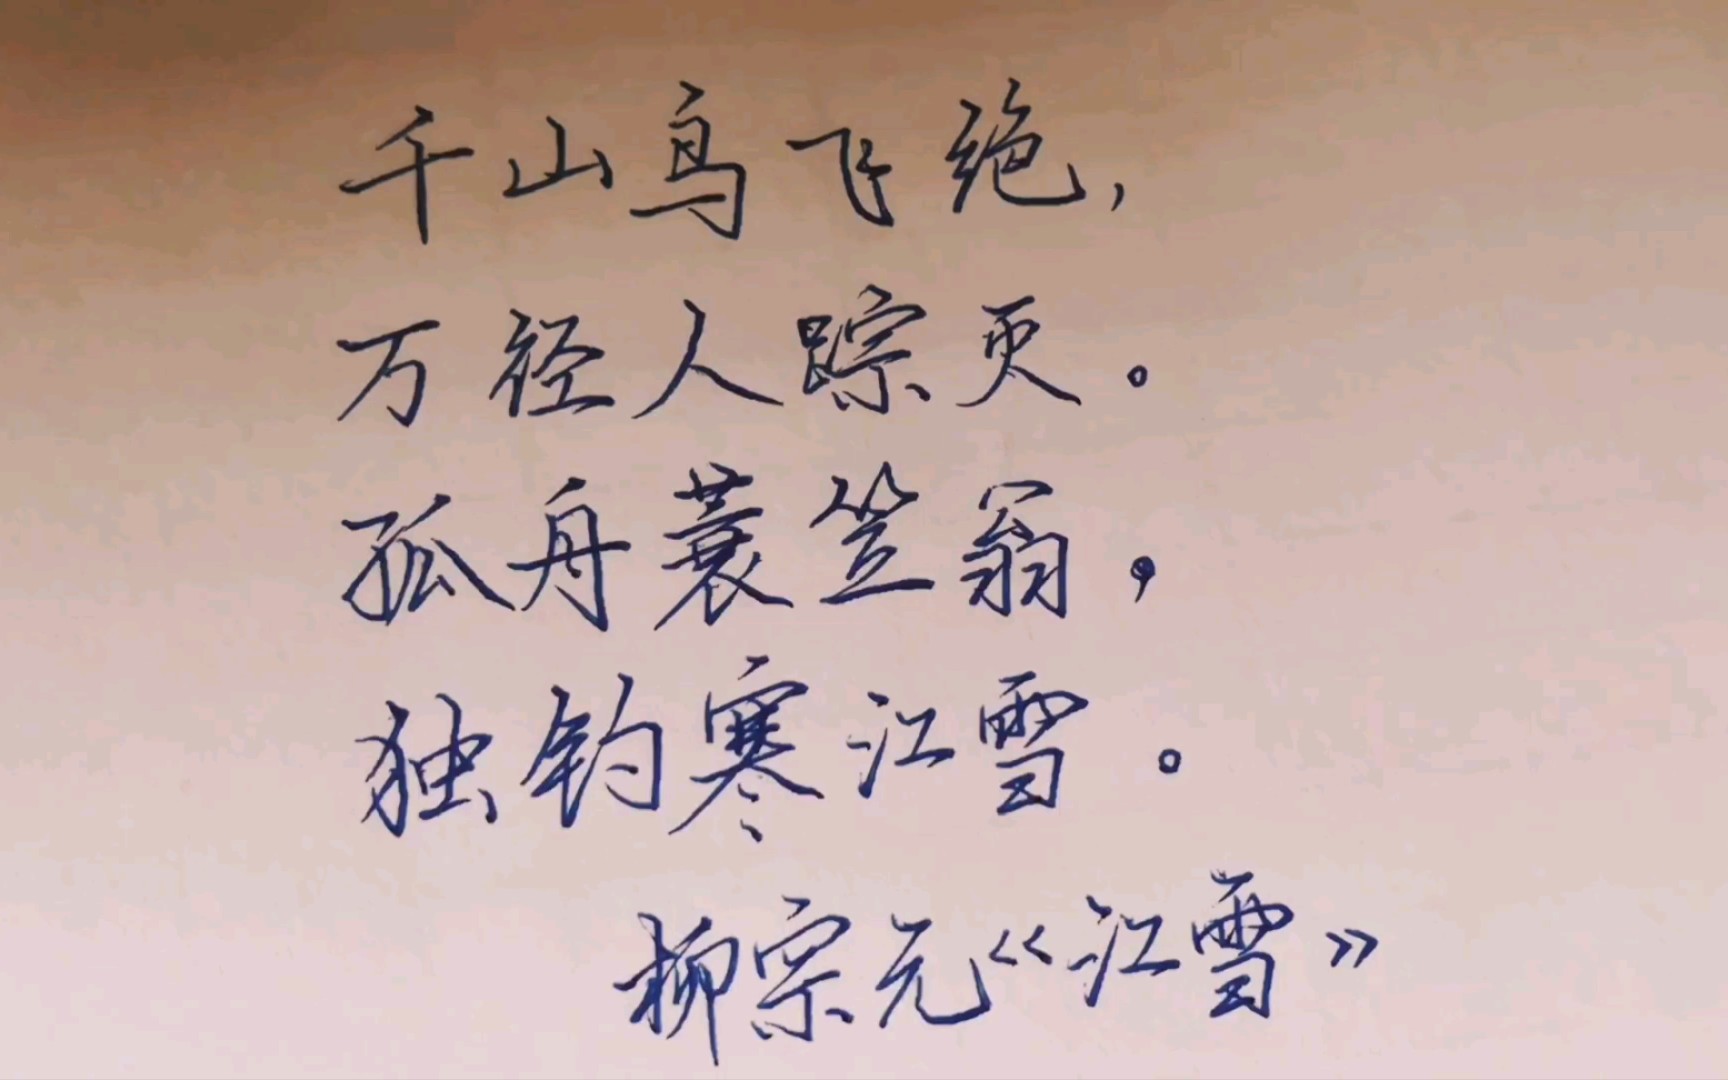 千山鸟飞绝，
万径人踪灭。
孤舟蓑笠翁，
独钓寒江雪。
柳宗元《江雪》